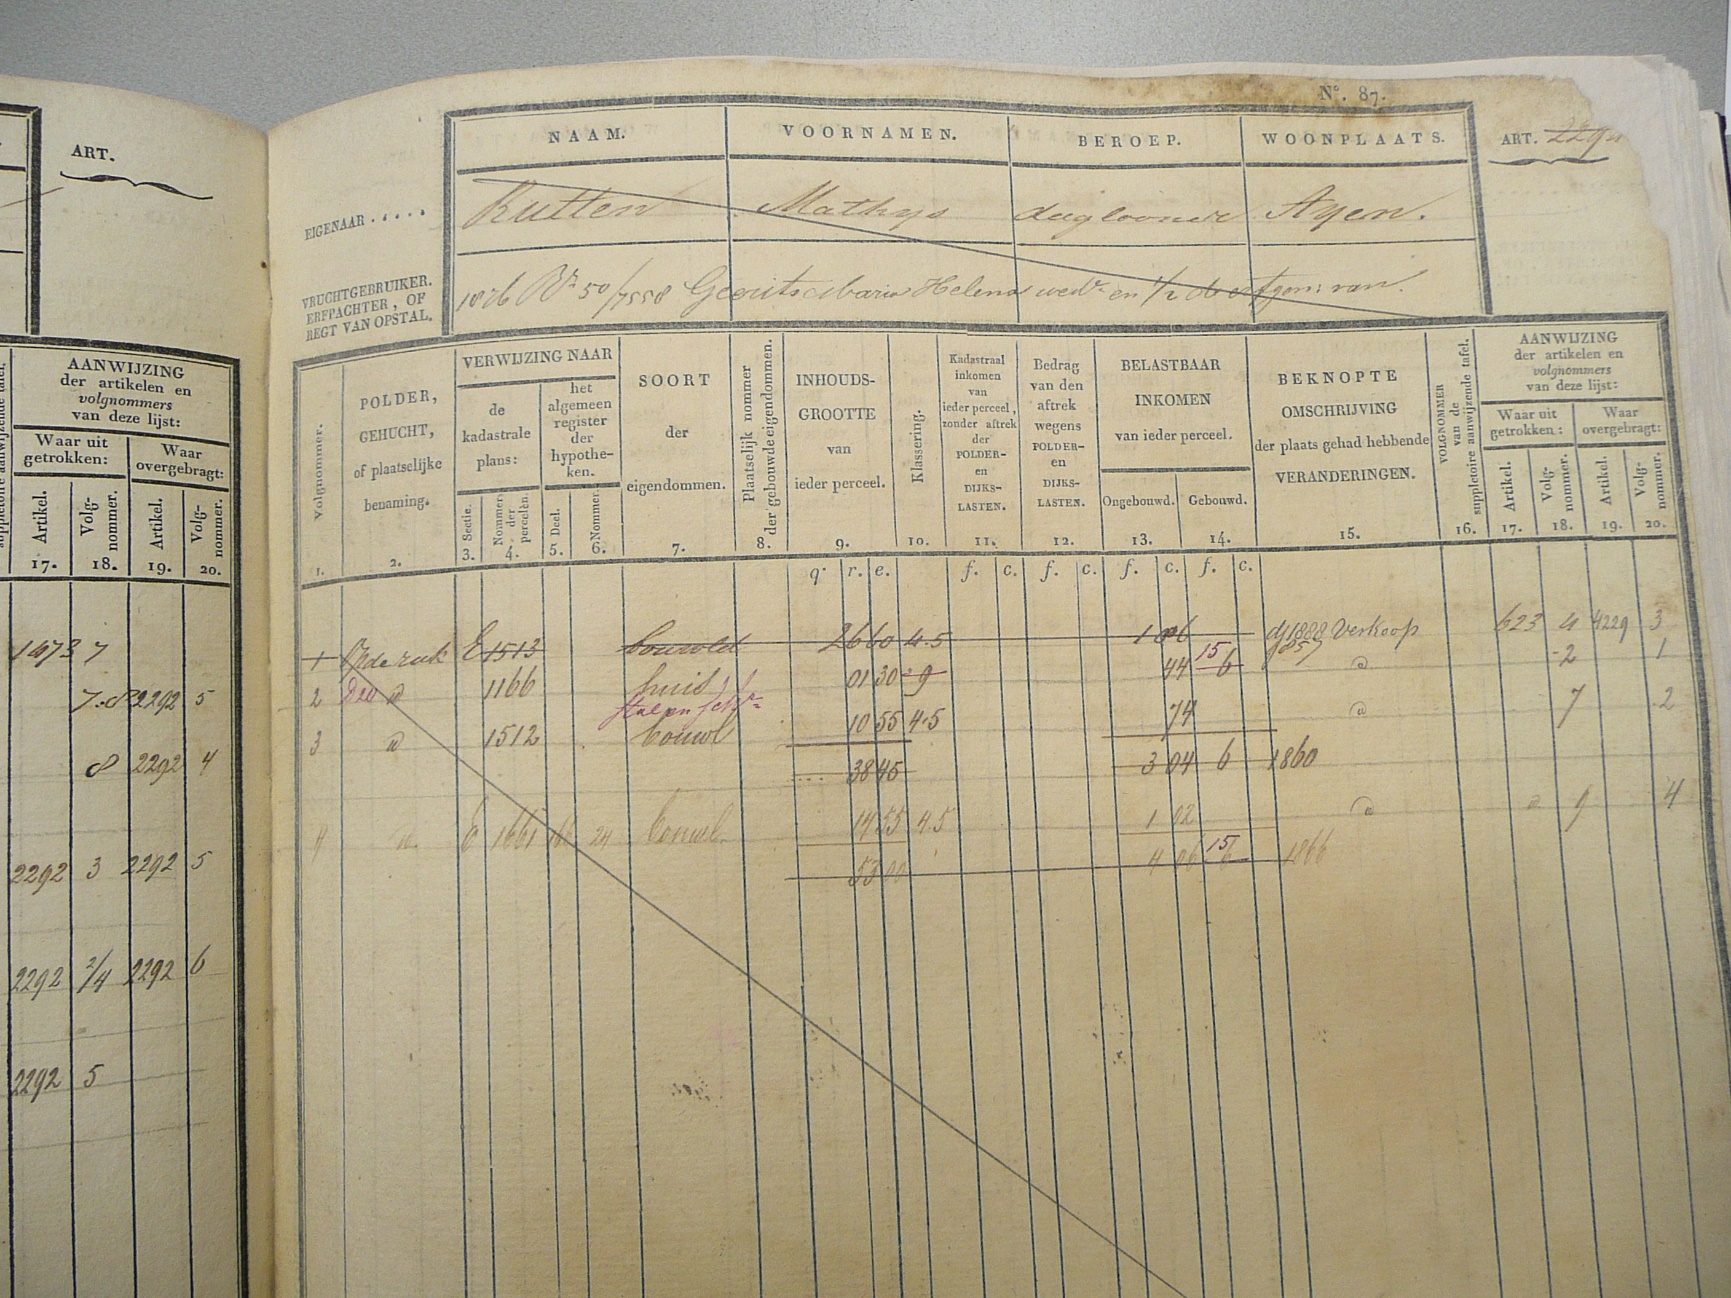 ART.
AANWIJZING
der artikelen en
volgnommers
van deze lijst:
Waar uit getrokken: Waar overgebragt:
Artikel. Volg-nommer. Artikel. Volg-nommer.
17. 18. 19. 20.
1473 7
7.8 2292 5
8 2292 4
2292 3 2292 5
2292 3/4 2292 6
2292 5
N°. 87.
NAAM. VOORNAMEN. BEROEP. WOONPLAATS. ART. 2294
EIGENAAR ..... Rutten Mathys daglooner Ayen.
VRUCHTGEBRUIKER.
ERFPACHTER, OF
REGT VAN OPSTAL.
1876 50/7558 Helena wed. en 1/2 van.
Volgnommer.
1.
POLDER,
GEHUCHT,
of plaatselijke
benaming.
2.
VERWIJZING NAAR
de
kadastrale
plans:
Sectie.
3.
Nommer der perceelen.
4.
het
algemeen
register
der
hypothe-
ken.
Deel.
5.
Nommer.
6.
SOORT
der
eigendommen.
7.
Plaatselijk nommer
der gebouwde eigendommen.
8.
INHOUDS-
GROOTTE
van
ieder perceel.
9.
Klassering.
10.
Kadastraal
inkomen
van
ieder perceel,
zonder aftrek
der
POLDER-
en
DIJKS-
LASTEN.
11.
Bedrag
van den
aftrek
wegens
POLDER-
en
DIJKS-
LASTEN.
12.
BELASTBAAR
INKOMEN
van ieder perceel.
Ongebouwd.
13.
Gebouwd.
14.
BEKNOPTE
OMSCHRIJVING
der plaats gehad hebbende
VERANDERINGEN.
15.
VOLGNOMMER
van de
suppletoire aanwijzende tafel.
16.
AANWIJZING
der artikelen en
volgnommers
van deze lijst:
Waar uit getrokken: Waar overgebragt:
Artikel. Volg-nommer. Artikel. Volg-nommer.
17. 18. 19. 20.
q. r. e. f. c. f. c. f. c. f. c.
1 Op de E 1513 bouwld 26 60 4.5 1 86 dj 1888 Verkoop 623 4 4229 3
2 d 1166 huis 01 30 9 44 15 6 1857 d 2 1
stal en
3 d 1512 bouwl 10 55 4.5 74 d 7 2
38 45 3 04 6 1860
4 d. E 1661 166 24 bouwl 14 55 4.5 1 02 d 9 4
53 00 4 06 15 6 1866